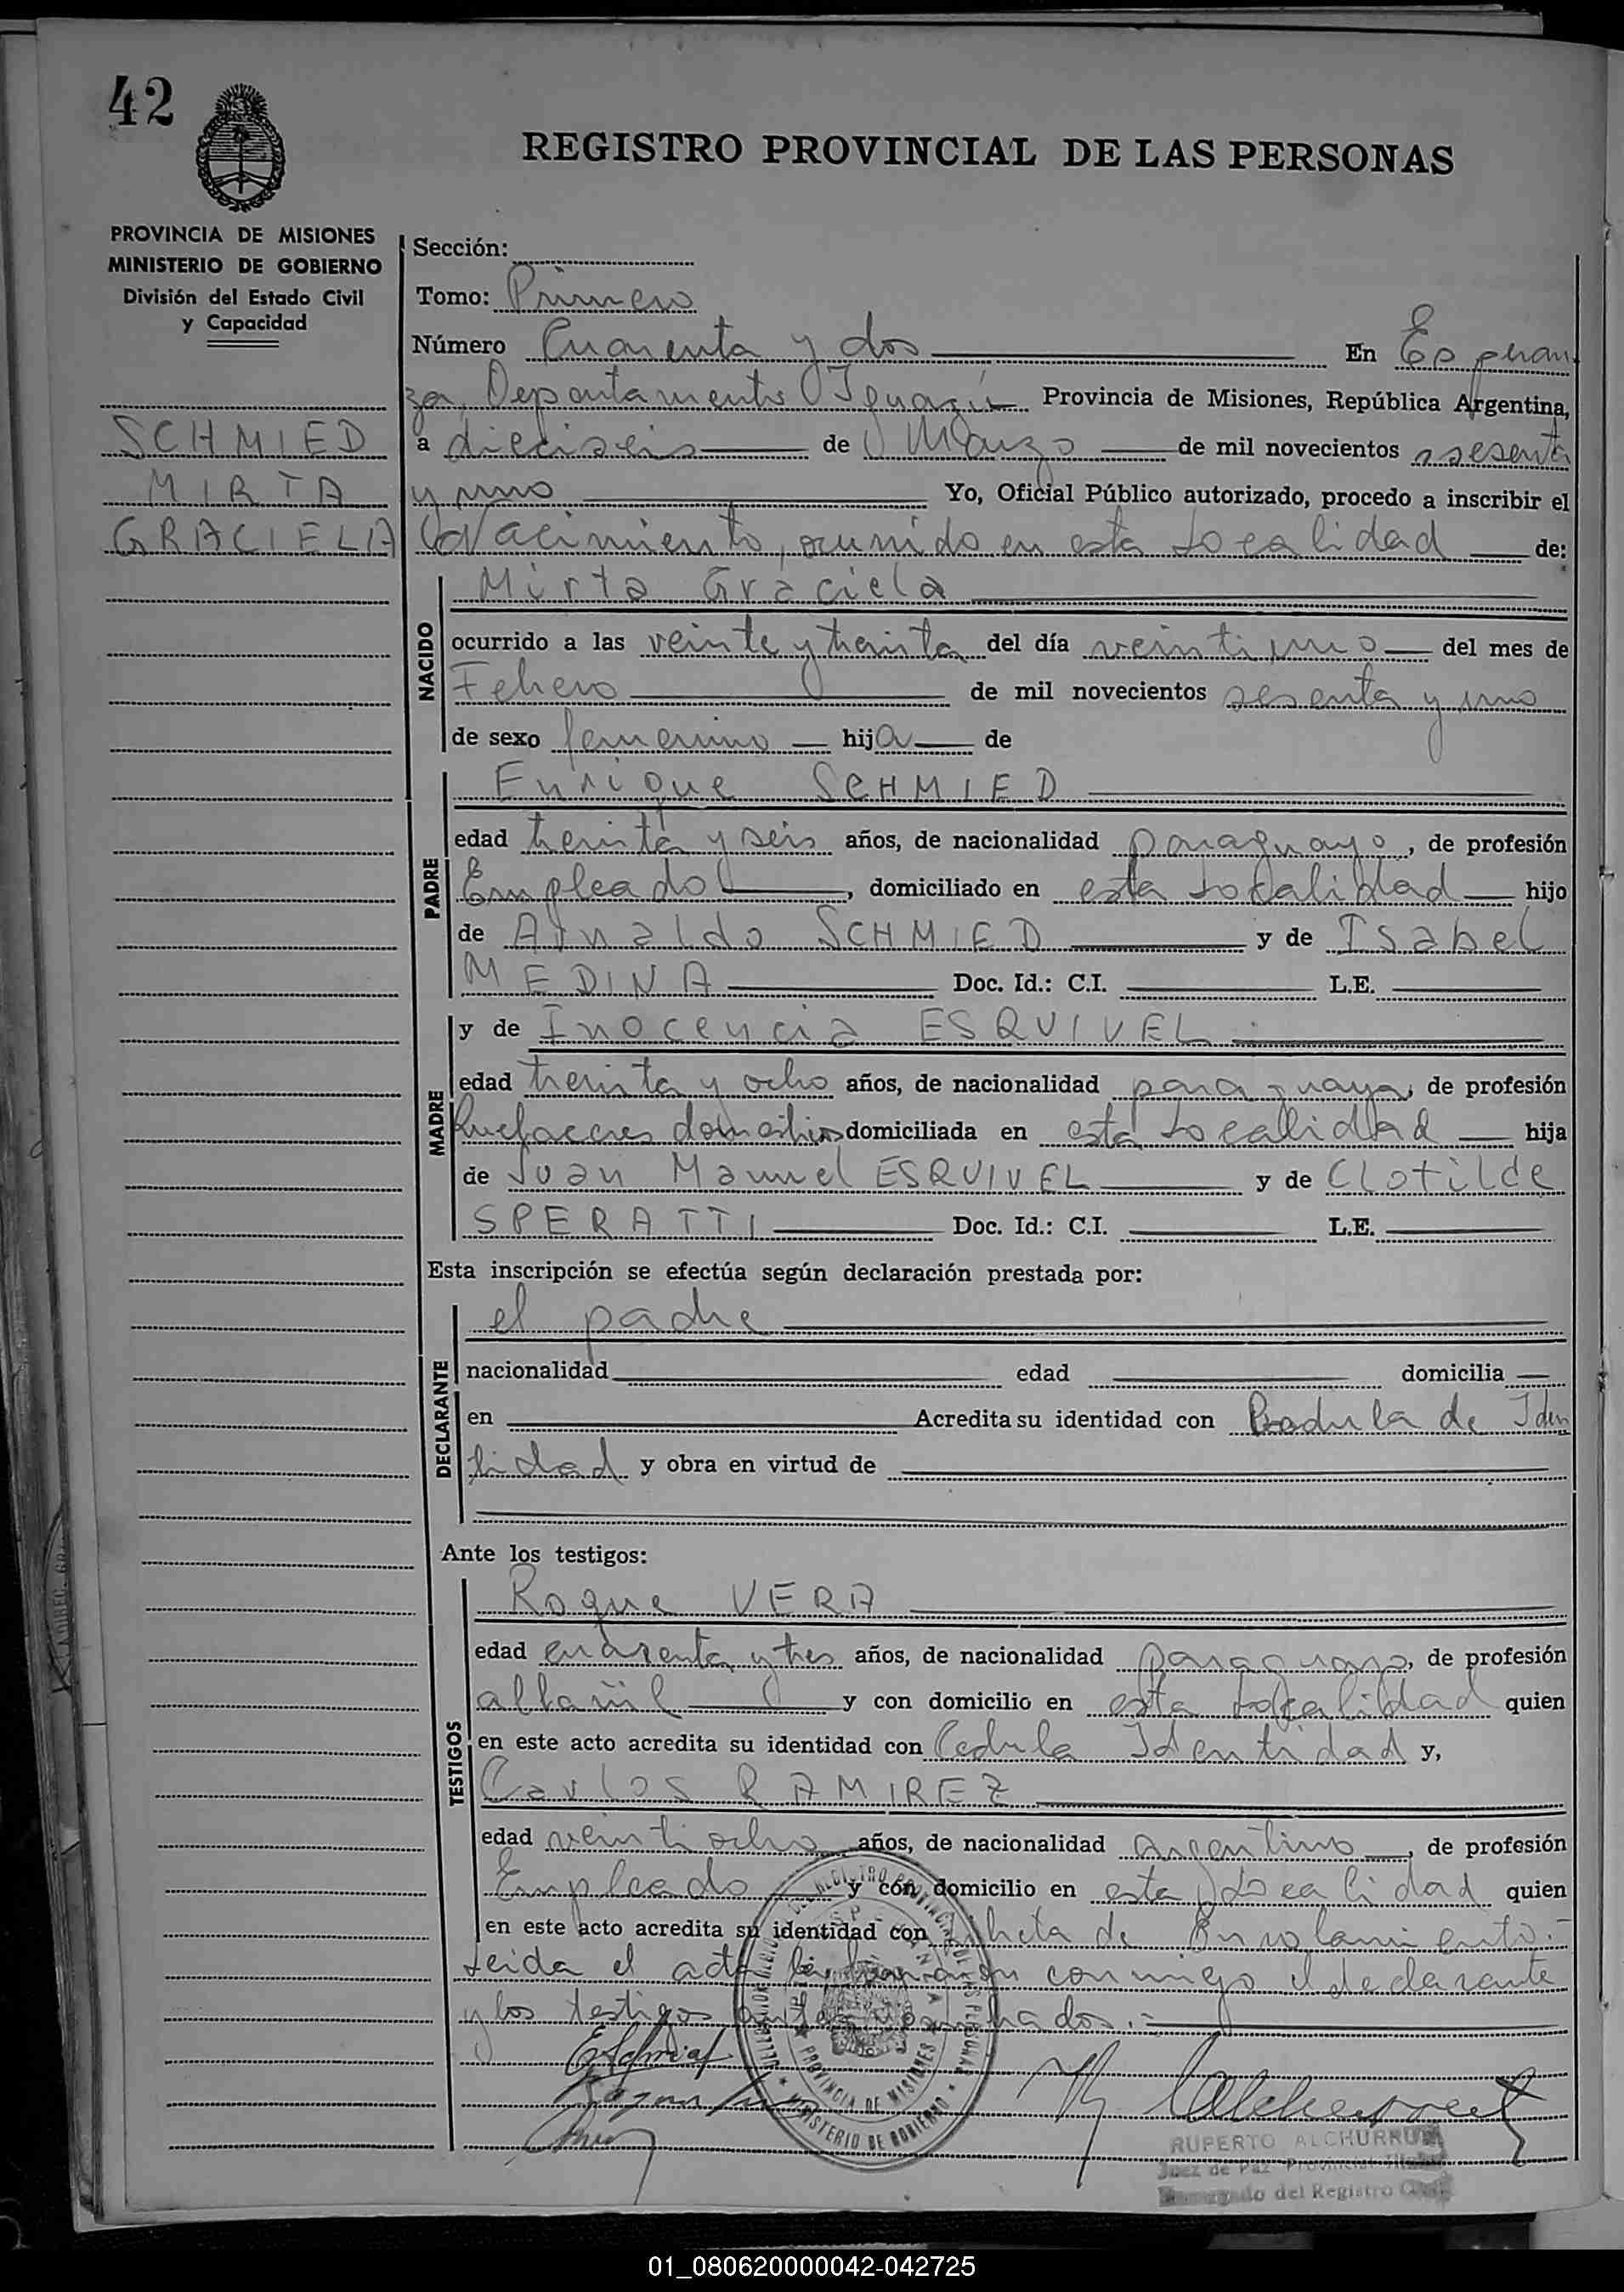 42
REGISTRO PROVINCIAL DE LAS PERSONAS
PROVINCIA DE MISIONES
MINISTERIO DE GOBIERNO
División del Estado Civil
y Capacidad
SCHMIED
MIRTA
GRACIELA
Sección:
Tomo: Primero
Número Cuarenta y dos En Esperan
za, Departamento Iguazú Provincia de Misiones, República Argentina,
a dieciseis de Marzo de mil novecientos sesenta
y uno Yo, Oficial Público autorizado, procedo a inscribir el
Nacimiento, ocurrido en esta Localidad de:
NACIDO
Mirta Graciela
ocurrido a las veinte y treinta del día veintiuno del mes de
Febrero de mil novecientos sesenta y uno
de sexo femenino hija de
PADRE
Enrique SCHMIED
edad treinta y seis años, de nacionalidad paraguayo, de profesión
Empleado, domiciliado en esta Localidad hijo
de Arnaldo SCHMIED y de Isabel
MEDINA Doc. Id.: C.I. L.E.
MADRE
y de Inocencia ESQUIVEL
edad treinta y ocho años, de nacionalidad paraguaya, de profesión
Quehaceres domesticos domiciliada en esta Localidad hija
de Juan Manuel ESQUIVEL y de Clotilde
SPERATTI Doc. Id.: C.I. L.E.
Esta inscripción se efectúa según declaración prestada por:
DECLARANTE
el padre
nacionalidad edad domicilia
en Acredita su identidad con de Iden
tidad y obra en virtud de
Ante los testigos:
TESTIGOS
Roque VERA
edad cuarenta y tres años, de nacionalidad paraguayo, de profesión
albañil y con domicilio en esta Localidad quien
en este acto acredita su identidad con Cedula Identidad y,
Carlos RAMIREZ
edad veintiocho años, de nacionalidad argentino, de profesión
Empleado y con domicilio en esta Localidad quien
en este acto acredita su identidad con Libreta de Enrolamiento.-
Leida el acta la firman conmigo el declarante
y los testigos antes nombrados.-
REGISTRO PROVINCIAL DE LAS PERSONAS
PROVINCIA DE MISIONES
MINISTERIO DE GOBIERNO
RUPERTO ALCHURRUT
Juez de Paz Provincial
Encargado del Registro Civil
01_080620000042-042725